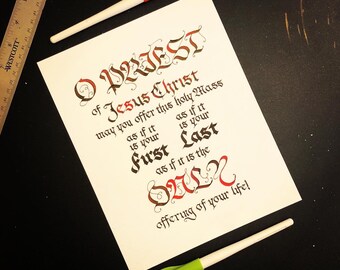 WESTCOTT
O PRIEST
of Jesus Christ
may you offer this holy Mass
as if it as if it
is your is your
First Last
as if it is the
ONLY
offering of your life!